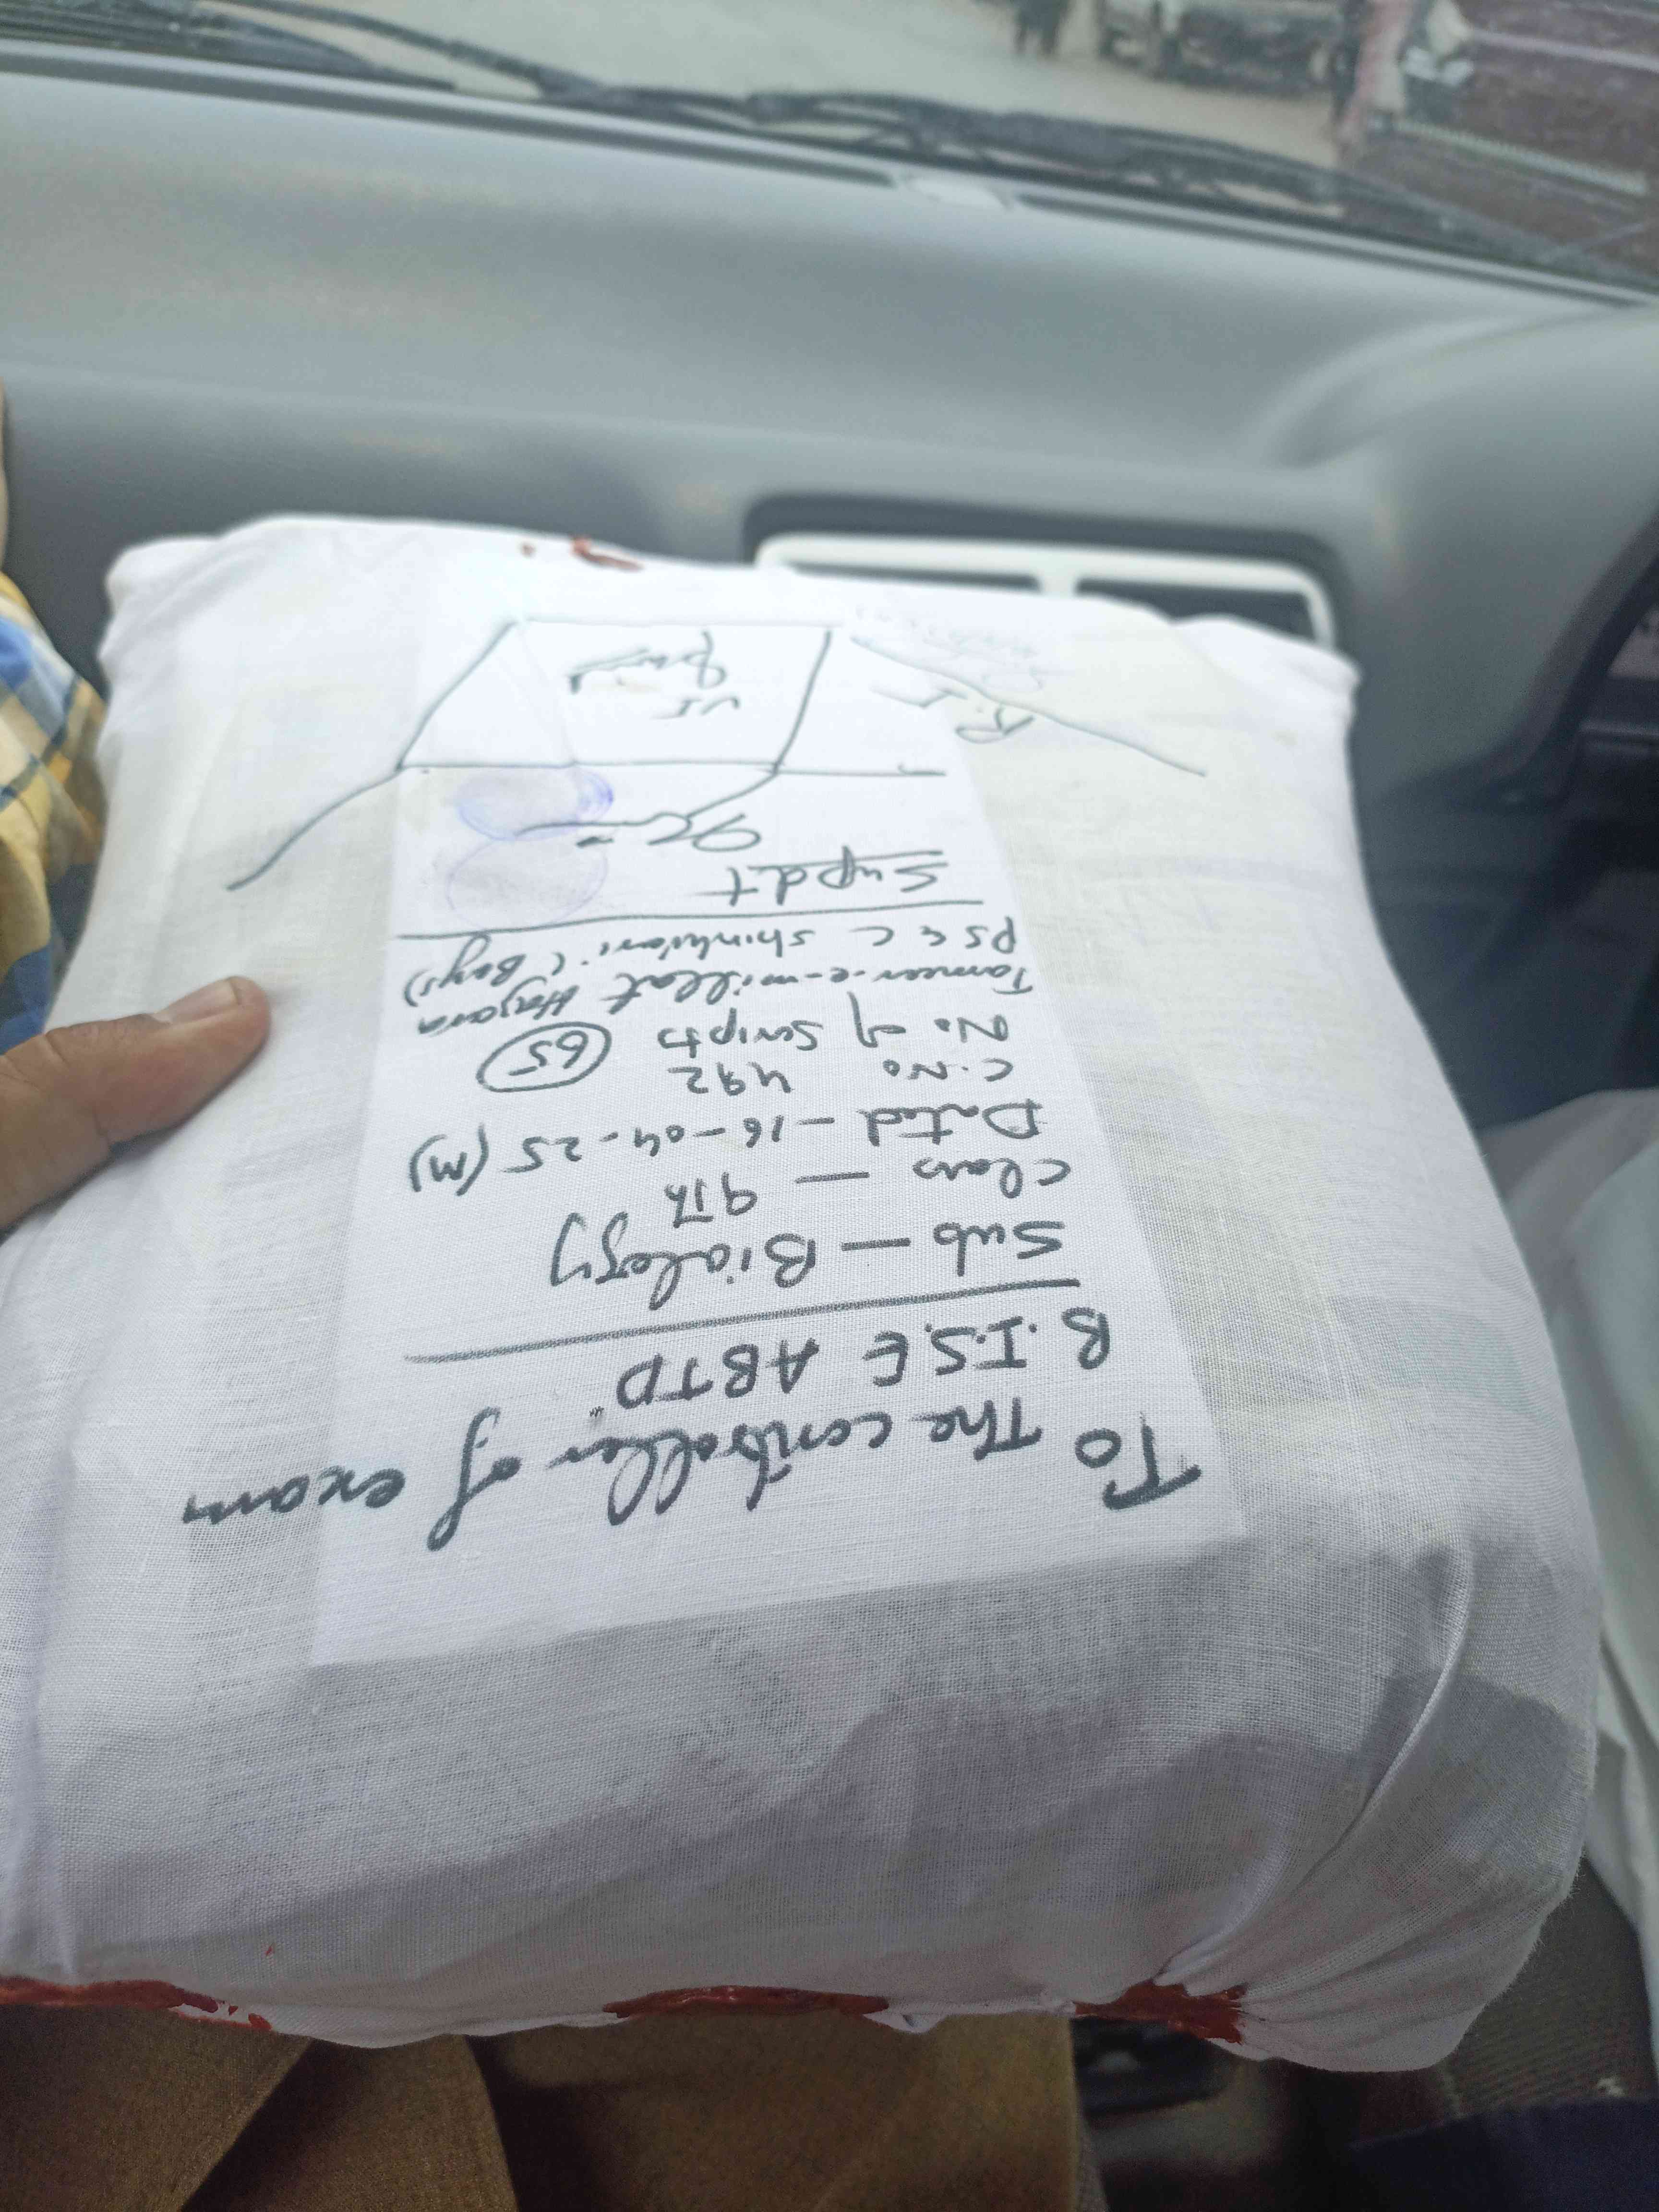 To The controller of exam
B.I.S.E ABTD
Sub — Biology
Class — 9Th
Dated - 16-04-25 (M)
C.No 492
No of Scripts 65
Tameer-e-millat Hazara
PS & C Shinkiari (Boys)
Supdt
VI
R.I